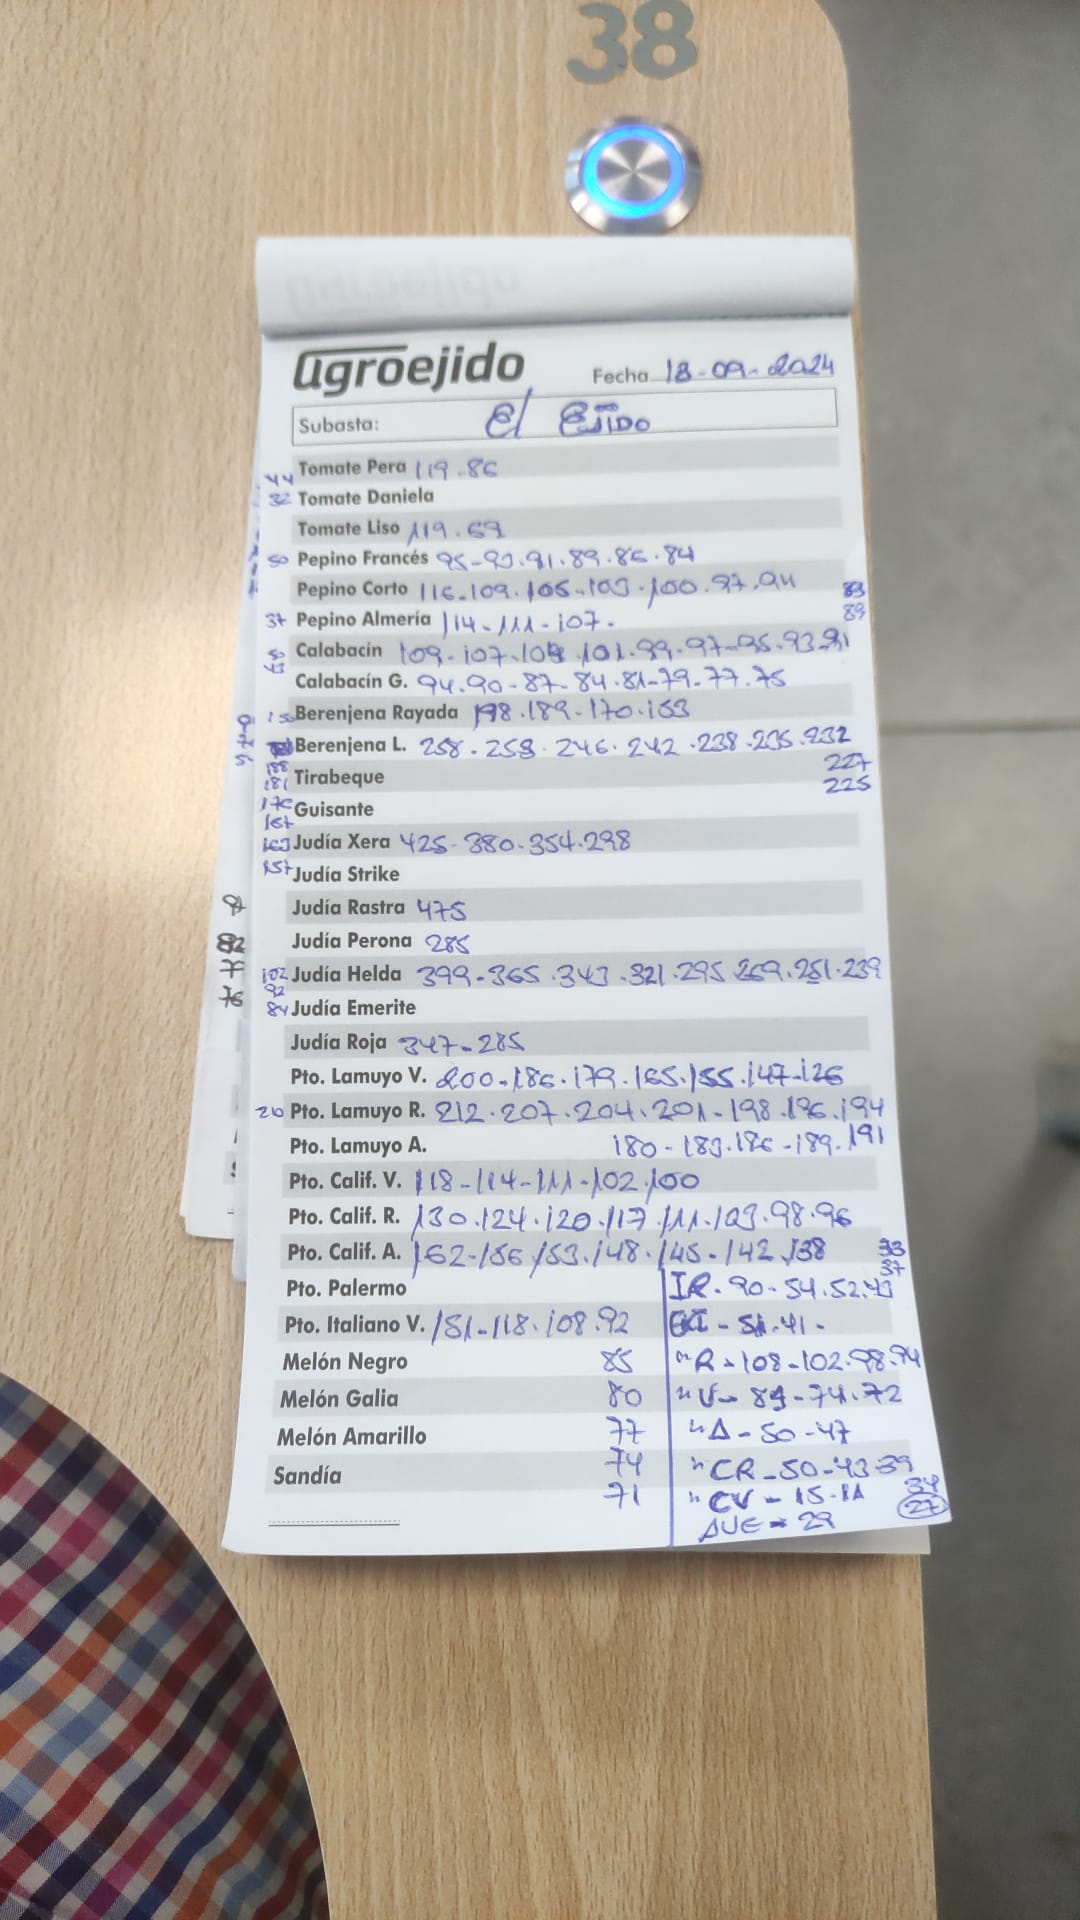 38
agroejido Fecha 18-09-2024
Subasta: El Ejido
Tomate Pera 119.86
44
32 Tomate Daniela
Tomate Liso 119.69
50 Pepino Francés 95-93.91.89.86.84
Pepino Corto 116.109.105-103.100.97.94 93
89
37 Pepino Almería 114-111-107.
Calabacín 109-107.104.101.99.97-95.93-91
Calabacín G. 94.90-87-84.81-79.77.75
150 Berenjena Rayada 198.189-170.153
Berenjena L. 258.253.246.242.238.235.232
227
225
188
181
Tirabeque
176 Guisante
167
163 Judía Xera 425-380.354.298
157 Judía Strike
Judía Rastra 475
Judía Perona 285
102 Judía Helda 399-365.343.321.295 269.251.239
92
84 Judía Emerite
Judía Roja 347-285
Pto. Lamuyo V. 200-186.179.165.155.147-126
210 Pto. Lamuyo R. 212.207.204.201-198.196.194
Pto. Lamuyo A. 180-183.186-189.191
Pto. Calif. V. 118-114-111-102.100
Pto. Calif. R. 130.124.120.117.111.103.98.96
Pto. Calif. A. 162-156.153.148.145-142.138 33
37
Pto. Palermo IR.90-54.52.43
Pto. Italiano V. 151-118.108.92 51.41-
Melón Negro 85 "R-108-102.98.94
Melón Galia 80 "V-89-74.72
Melón Amarillo 77 "A-50-47
Sandía 74 "CR-50-43-39
34
71 "CV-15-11 27
AVE-29
82
77
76